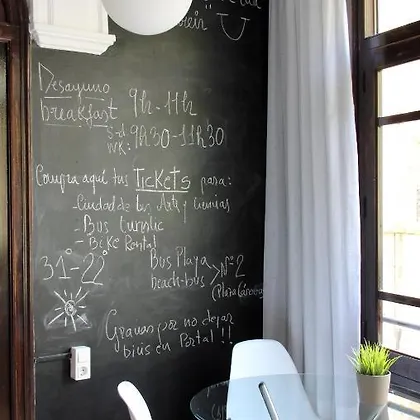 Desayuno 9h-11h
breakfast
S-d 9h30-11h30
WK:
Compra aquí tus TICKETS para:
-Ciudad de las Arts y Ciencias
-Bus turistic
-Bike Rental
31º-22º
Bus Playa
beach-bus > Nº2
Gracias por no dejar
bicis en Portal !!